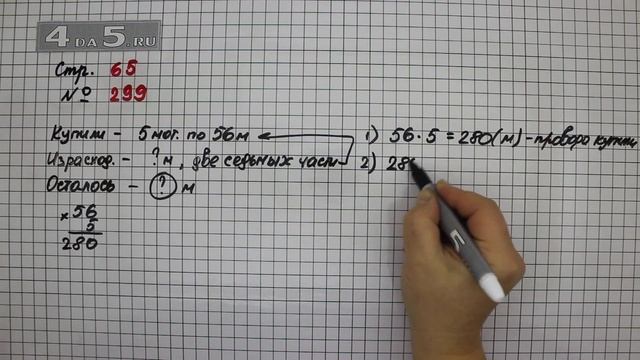 4DA5.RU
Стр. 65
№ 299
Купили - 5 мот. по 56 м
Израсход. - ? м, две седьмых части
Осталось - ? м
× 56
5
280
1) 56 · 5 = 280 (м) - провода купили
2) 28